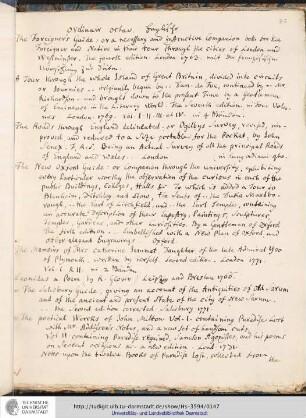 Ordinair octav Englische
The Foreigners Guide: or a necessary and instructive companion both for the
Foreigner and Native in their Tour through the Cities of London and
Westminster. the fourth edition. London 1763. mit der französischen
A Tour through the whole Island of Great Britain divided into circuits
or Journies. originally begun by Dan. de Foe, continued by Mr.
Richardson. and brought down to the present Time by a gentleman
of Eminence in the Literary World. The Seventh edition in four Volu-
mes London. 1769. Vol. I. II. III et IV. in 4 Bänden.
The Roads through England delineated. or Ogilbys Survey, revised, im-
proved and reduced to a Size portable for the Pocket, by John
Senex. F. R. S. Being an Actual Survey of all the principal Roads
of England and Wales. London
The New Oxford Guide: or Companion through the University. exhibiting
every particular worthy the observation of the curious in each of the
public Buildings, Colleges, Halls &c To which is added a Tour to
Blenheim, Ditchley and Stow, the Seats of the Duke Marlbo-
rough, the Earl of Litchfield and the Earl Temple, containing
an accurate Description of their Tapestry, Paintings, Sculptures,
Temples, gardens, and other curiosities. By a gentleman of Oxford
The sixth edition. Embellished with a New Plan of Oxford and
other elegant Engravings Oxford.
Memoirs of Miss Catherine Jemmat Daughter of the late Admiral Yeo
of Plymouth. written by herself. Second edition. London 1771.
Vol. I & II. in 2 Bänden.
Leonidas a Poem by R. Glover. Leipzig and Breslau 1766.
The Salisbury Guide, giving an account of the Antiquities of Old Sarum
and of the ancient and present State of the City of New Sarum.
the Second edition corrected. Salisbury 1771.
The poetical Works of John Milton Vol. I. containing Paradise lost
Vol. II. containing Paradise regained, Samson Agonistes, and his poems
on several occasions. a new edition. Lond. 1731.
Notes upon the twelve Books of Paradise lost, collected from
the
TECHNISCHE UNIVERSITÄT DARMSTADT
http://tudigit.ulb.tu-darmstadt.de/show/Hs-3594/0147
Universitäts- und Landesbibliothek Darmstadt